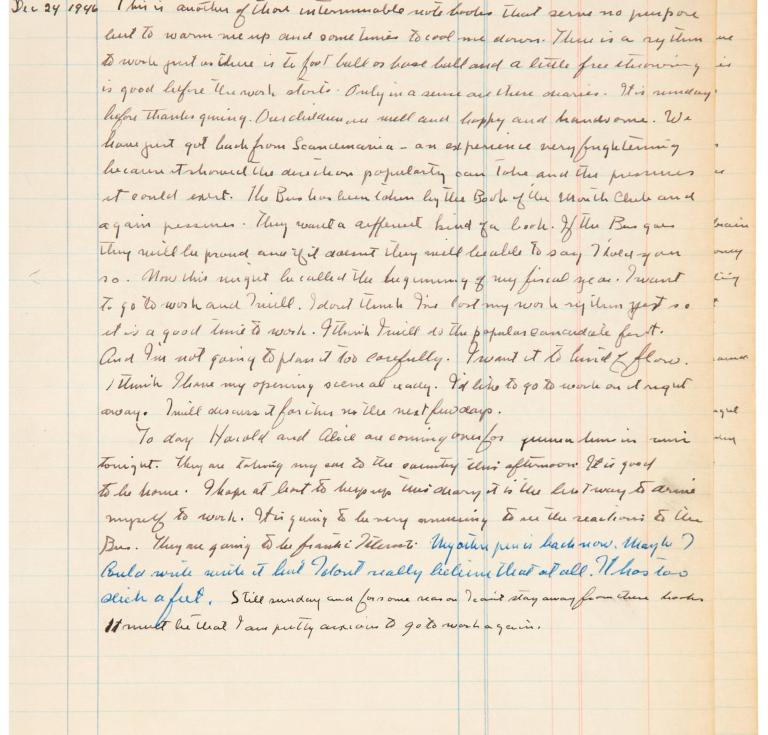 Dec 24 1946 This is another of those interminable note books that serve no purpose
but to warm me up and sometimes to cool me down. There is a rythm
to work just as there is to foot ball or base ball and a little free throwing
is good before the work starts. Only in a sense are these diaries. It is sunday
before thanksgiving. Our children are well and happy and handsome. We
have just got back from Scandinavia - an experience very frightening
because it showed the direction popularity can take and the pressures
it could exert. The Bus has been taken by the Book of the Month Club and
again pressures. They want a different kind of a book. If the Bus goes
they will be proud and if it doesnt they will be able to say I told you
so. Now this might be called the beginning of my fiscal year. I want
to go to work and I will. I dont think I've lost my work rythm yet so
it is a good time to work. I think I will do the popular candidate first.
And I'm not going to plan it too carefully. I want it to kind of flow.
I think I have my opening scene al ready. I'd like to go to work on it right
away. I will discuss it further in the next few days.
To day Harold and Alice are coming over for
tonight. They are taking my car to the country this afternoon. It is good
to be home. I hope at least to keep up this diary it is the best way to drive
myself to work. It is going to be very amusing to see the reactions to the
Bus. They are going to be frantic I suspect. My other pen is back now. Maybe I
Could write with it but I dont really believe that at all. It has too
slick a feel. Still sunday and for some reason I cant stay away from these books
It must be that I am pretty anxious to go to work again.